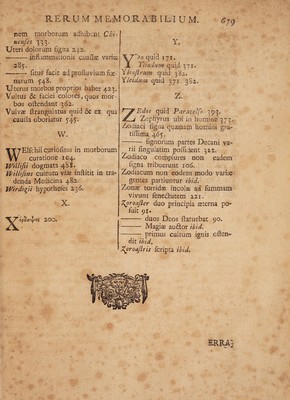 RERUM MEMORABILIUM. 679
nem morborum adhibent Chi-
nenses 333.
Uteri dolorum signa 242.
—— inflammationis causæ variæ
285.
—— situs facit ad profluvium
548.
Uterus morbos proprios habet 423.
Vultus & faciei colores, quos mor-
bos ostendant 362.
Vulvæ strangulatus quid & ex qua
causa oboriatur 545.
W.
Welschii curiosum in morborum
curatione 104.
Willisii dogmata 488.
Willisius cultum vitæ instituit in tra-
denda Medicina 482.
Wirdigii hypotheses 236.
X.
200.
Y.
Yn quid 171.
quid 371.
quid 382.
quid 371. 382.
Z.
quid Paracelso 393.
Zephyrus ubi in homine 373.
Zodiaci signa quænam homini gra-
tissima 465.
—— signorum partes Decani va-
rii singulatim possident 312.
Zodiaco complures non eadem
signa tribuerunt 106.
Zodiacum non eodem modo variæ
gentes partiuntur ibid.
Zonæ torridæ incolæ ad summam
vivunt senectutem 221.
Zoroaster duo principia æterna po-
suit 91.
—— duos Deos statuebat 90.
—— Magiæ auctor ibid.
—— primus cultum ignis osten-
dit ibid.
Zoroastris scripta ibid.
ERRA-